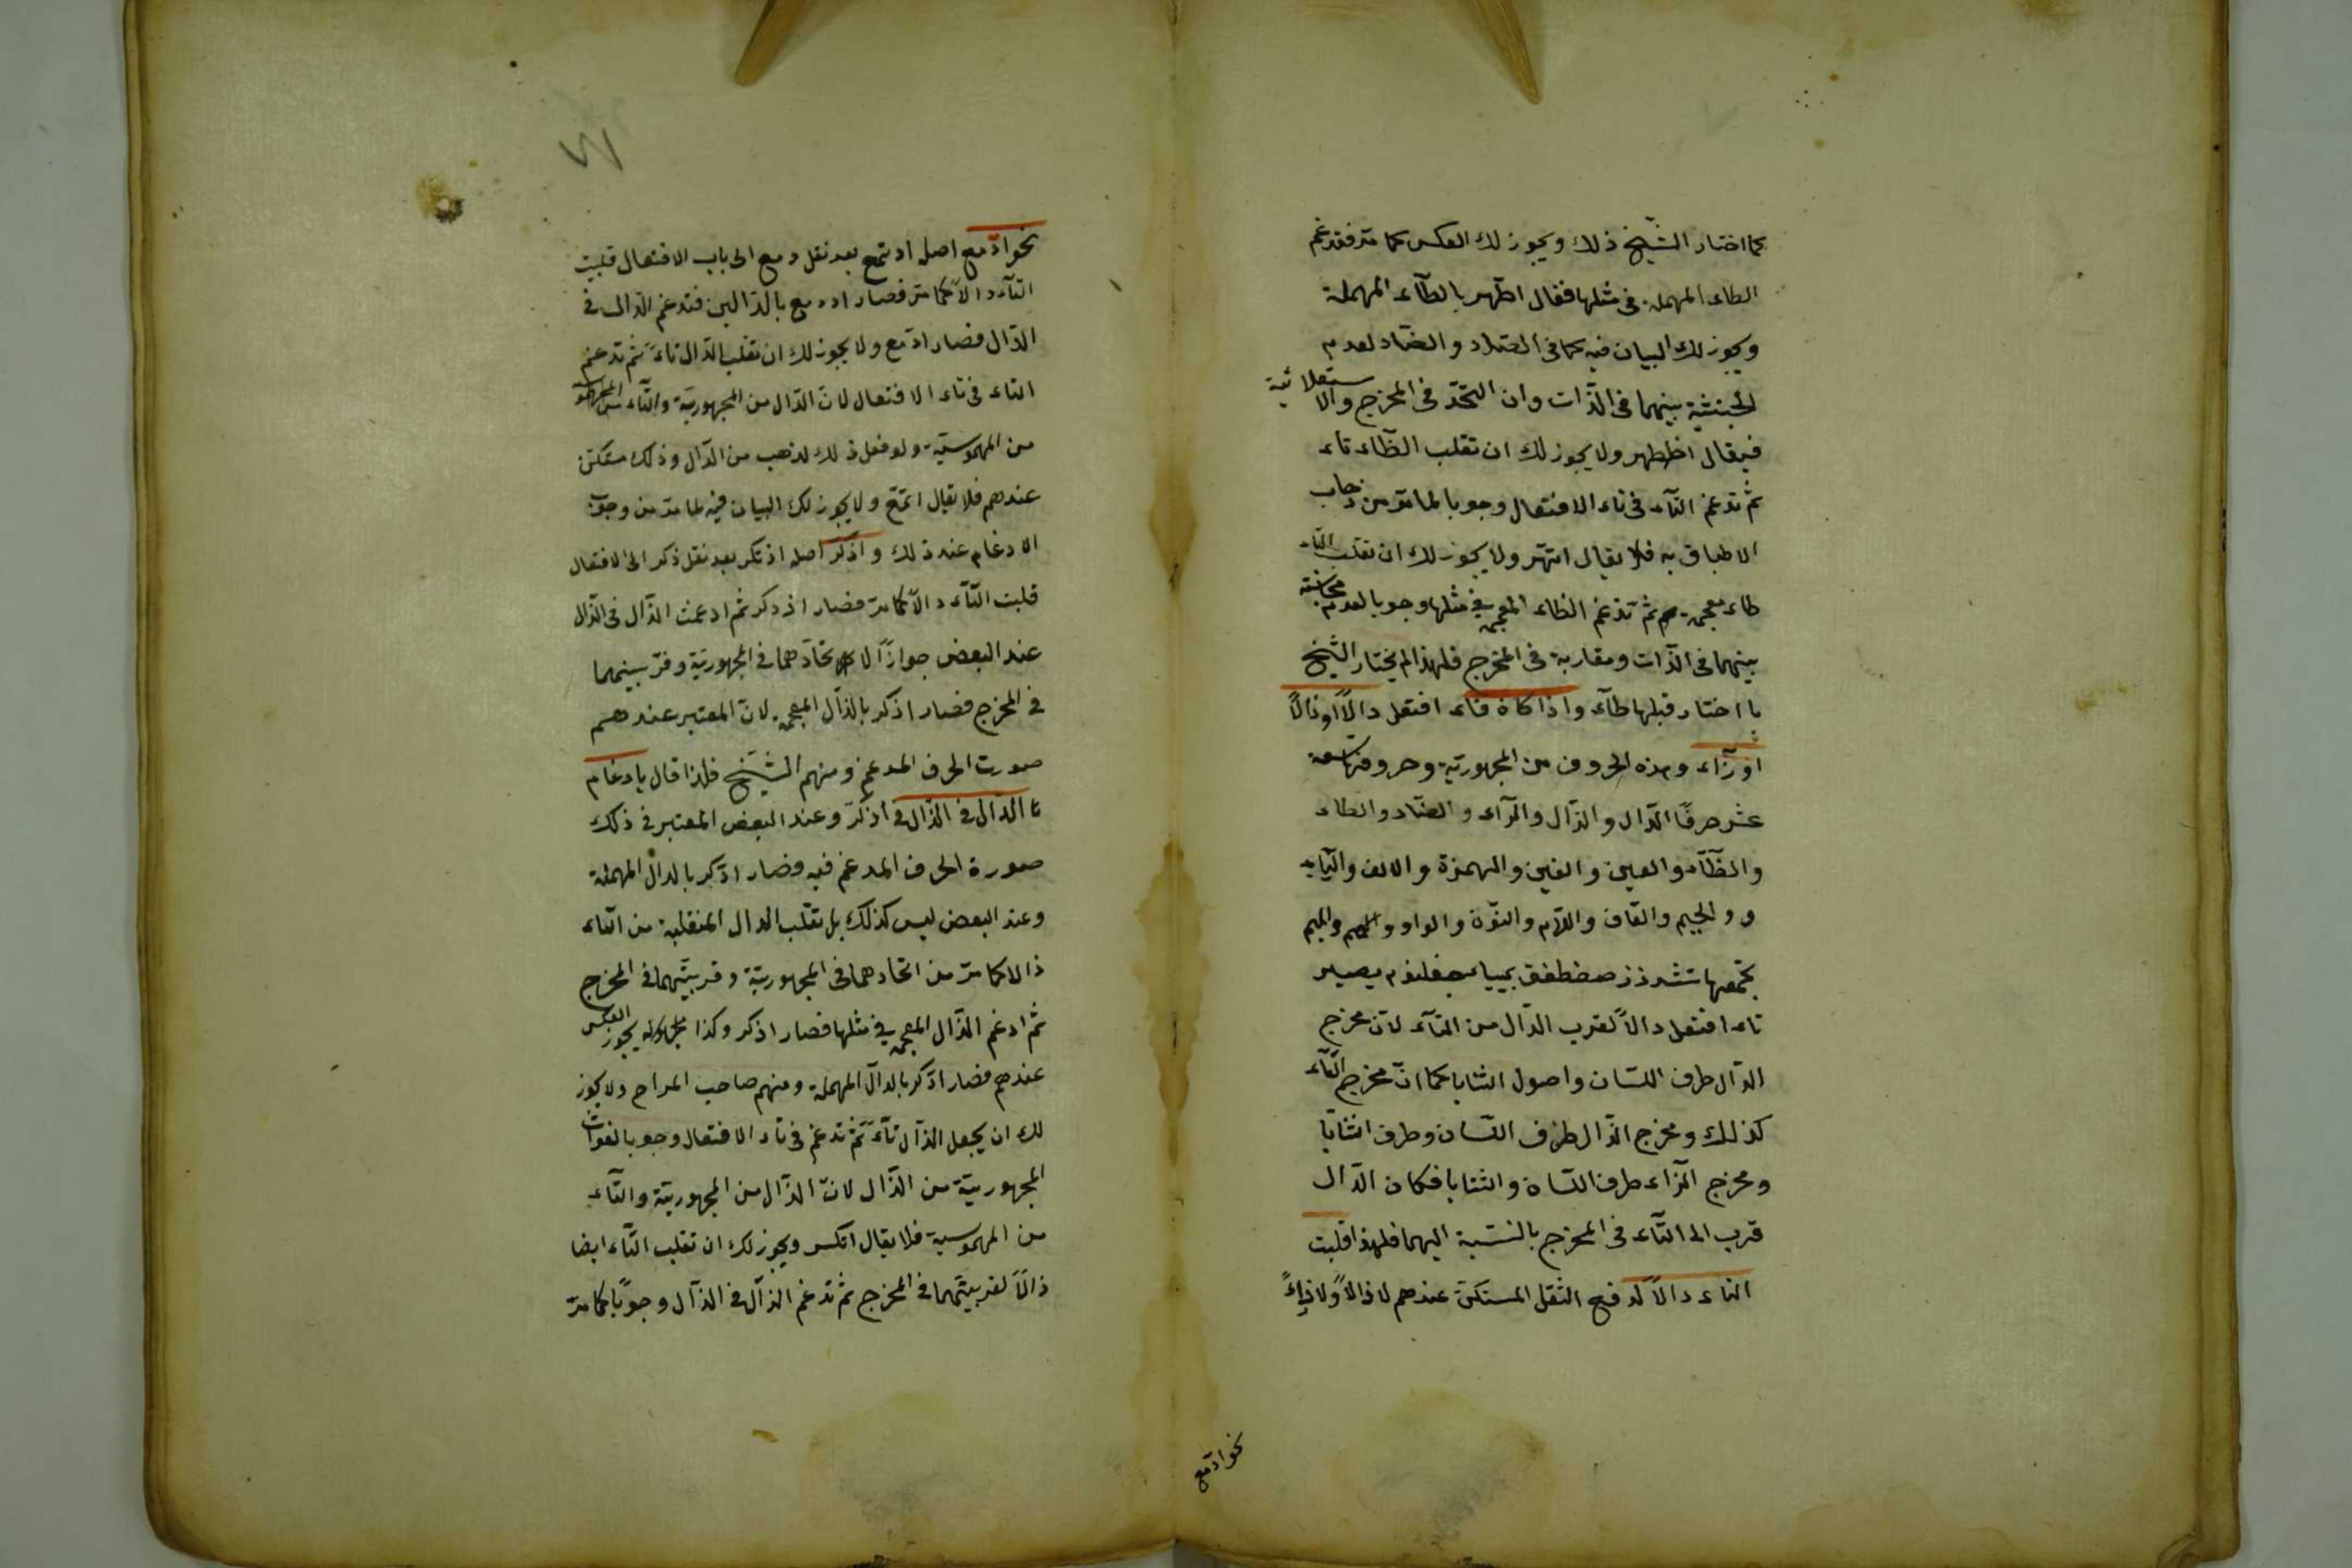 كما اختار الشيخ ذلك ويجوز لك العكس كما مر فتدغم
الطاء المهملة في مثلها فقال اطّهر بالطآء المهملة
ويجوز لك البيان فيه كما في الصّاد والضّاد لعدم
الجنسية بينهما في الذّات وان اتحدّ في المخرج والاستعلائية
فيقال اظطهر ولا يجوز لك ان تقلب الظّاء تاء
ثم تدغم التّآء في تاء الافتعال وجوبا لما مرّ من ذهاب
الاطباق به فلا يقال اتّهر ولا يجوز لك ان تقلب التّاء
ظاء معجمة ثم تدغم الظاء المعجمة في مثلها وجوبا لعدم مجانسة
بينهما في الذّات ومقاربة في المخرج فلهذا لم يختار الشّيخ
ما اختار قبلها طآء واذا كان فاء افتعل دالًا او ذالًا
او زآء وهذه الحروف من المجهورية وحروفها تسعة
عشر حرفًا الدّال والذّال والزّآء والضّاد والطاء
والظّآء والعين والغين والهمزة والالف واليّاء
و والجيم والقاف واللّام والنّون والواو والميم
يجمعها
تاء افتعل دالًا لقرب الدّال من التّآء لانّ مخرج
الدّال طرف اللسّان واصول الثنايا كما انّ مخرج التّآء
كذلك ومخرج الذّال طرف اللّسان وطرف الثنايا
ومخرج الزّاء طرف اللسّان والثنايا فكان الدّال
قرب الى التّآء في المخرج بالنسّبة اليهما فلهذا قلبت
التاء دالًا لدفع الثّقل المستكنّ عندهم لا ذالًا ولا زاءً
نحو ادّمع
نحو ادّمع اصله ادتمع بعد نقل دمع الى باب الافتعال قلبت
التّآء دالًا كما مرّ فصار اددمع بالدّالين فتدغم الدّال في
الدّال فصار ادّمع ولا يجوز لك ان تقلب الدّال تاءً ثم تدغم
التاء في تاء الافتعال لانّ الدّال من المجهوريّة والتّاء
من المهموسيّة ولو فعل ذلك لذهب من الدّال وذلك مستكن
عندهم فلا يقال اتّمع ولا يجوز لك البيان فيه لما مرّ من وجوب
الادغام عند ذلك واذّكر اصله اذتكر بعد نقل ذكر الى الافتعال
قلبت التّآء دالًا كما مرّ فصار اذدكر ثم ادغمت الدّال في الذّال
عند البعض جوازًا لاتحّادهما في المجهوريّة وقرّبينهما
في المخرج فصار اذكر بالذّال المعجمة لانّ المعتبر عندهم
صورت الحرف المدغم ومنهم الشّيخ فلذا قال بادغام
الدّال في الذّال في اذّكرّ وعند البعض المعتبر في ذلك
صورة الحرف المدغم فيه فصار ادّكر بالدال المهملة
وعند البعض ليس كذلك بل تقلّب الدال المنقلبة من التّاء
ذالا كما مرّ من اتحادهما في المجهوريّة وقربيّتهما في المخرج
ثم ادغم الذّال المعجمة في مثلها فصار اذكر وكذا يجوز العكس
عندهم فصار ادّكر بالدّال المهملة ومنهم صاحب المراح ولا يجوز
لك ان يجعل الذّال تآءً ثمّ تدغم في تاء الافتعال وجوبا لفوات
المجهوريّة من الذّال لانّ الذّال من المجهوريّة والتّآء
من المهموسية فلا يقال اتّكر ويجوز لك ان تقلب التّاء ايضا
ذالًا لقربيّتهما في المخرج ثم تدغم الذّال في الذّال وجوبًا كما مرّ